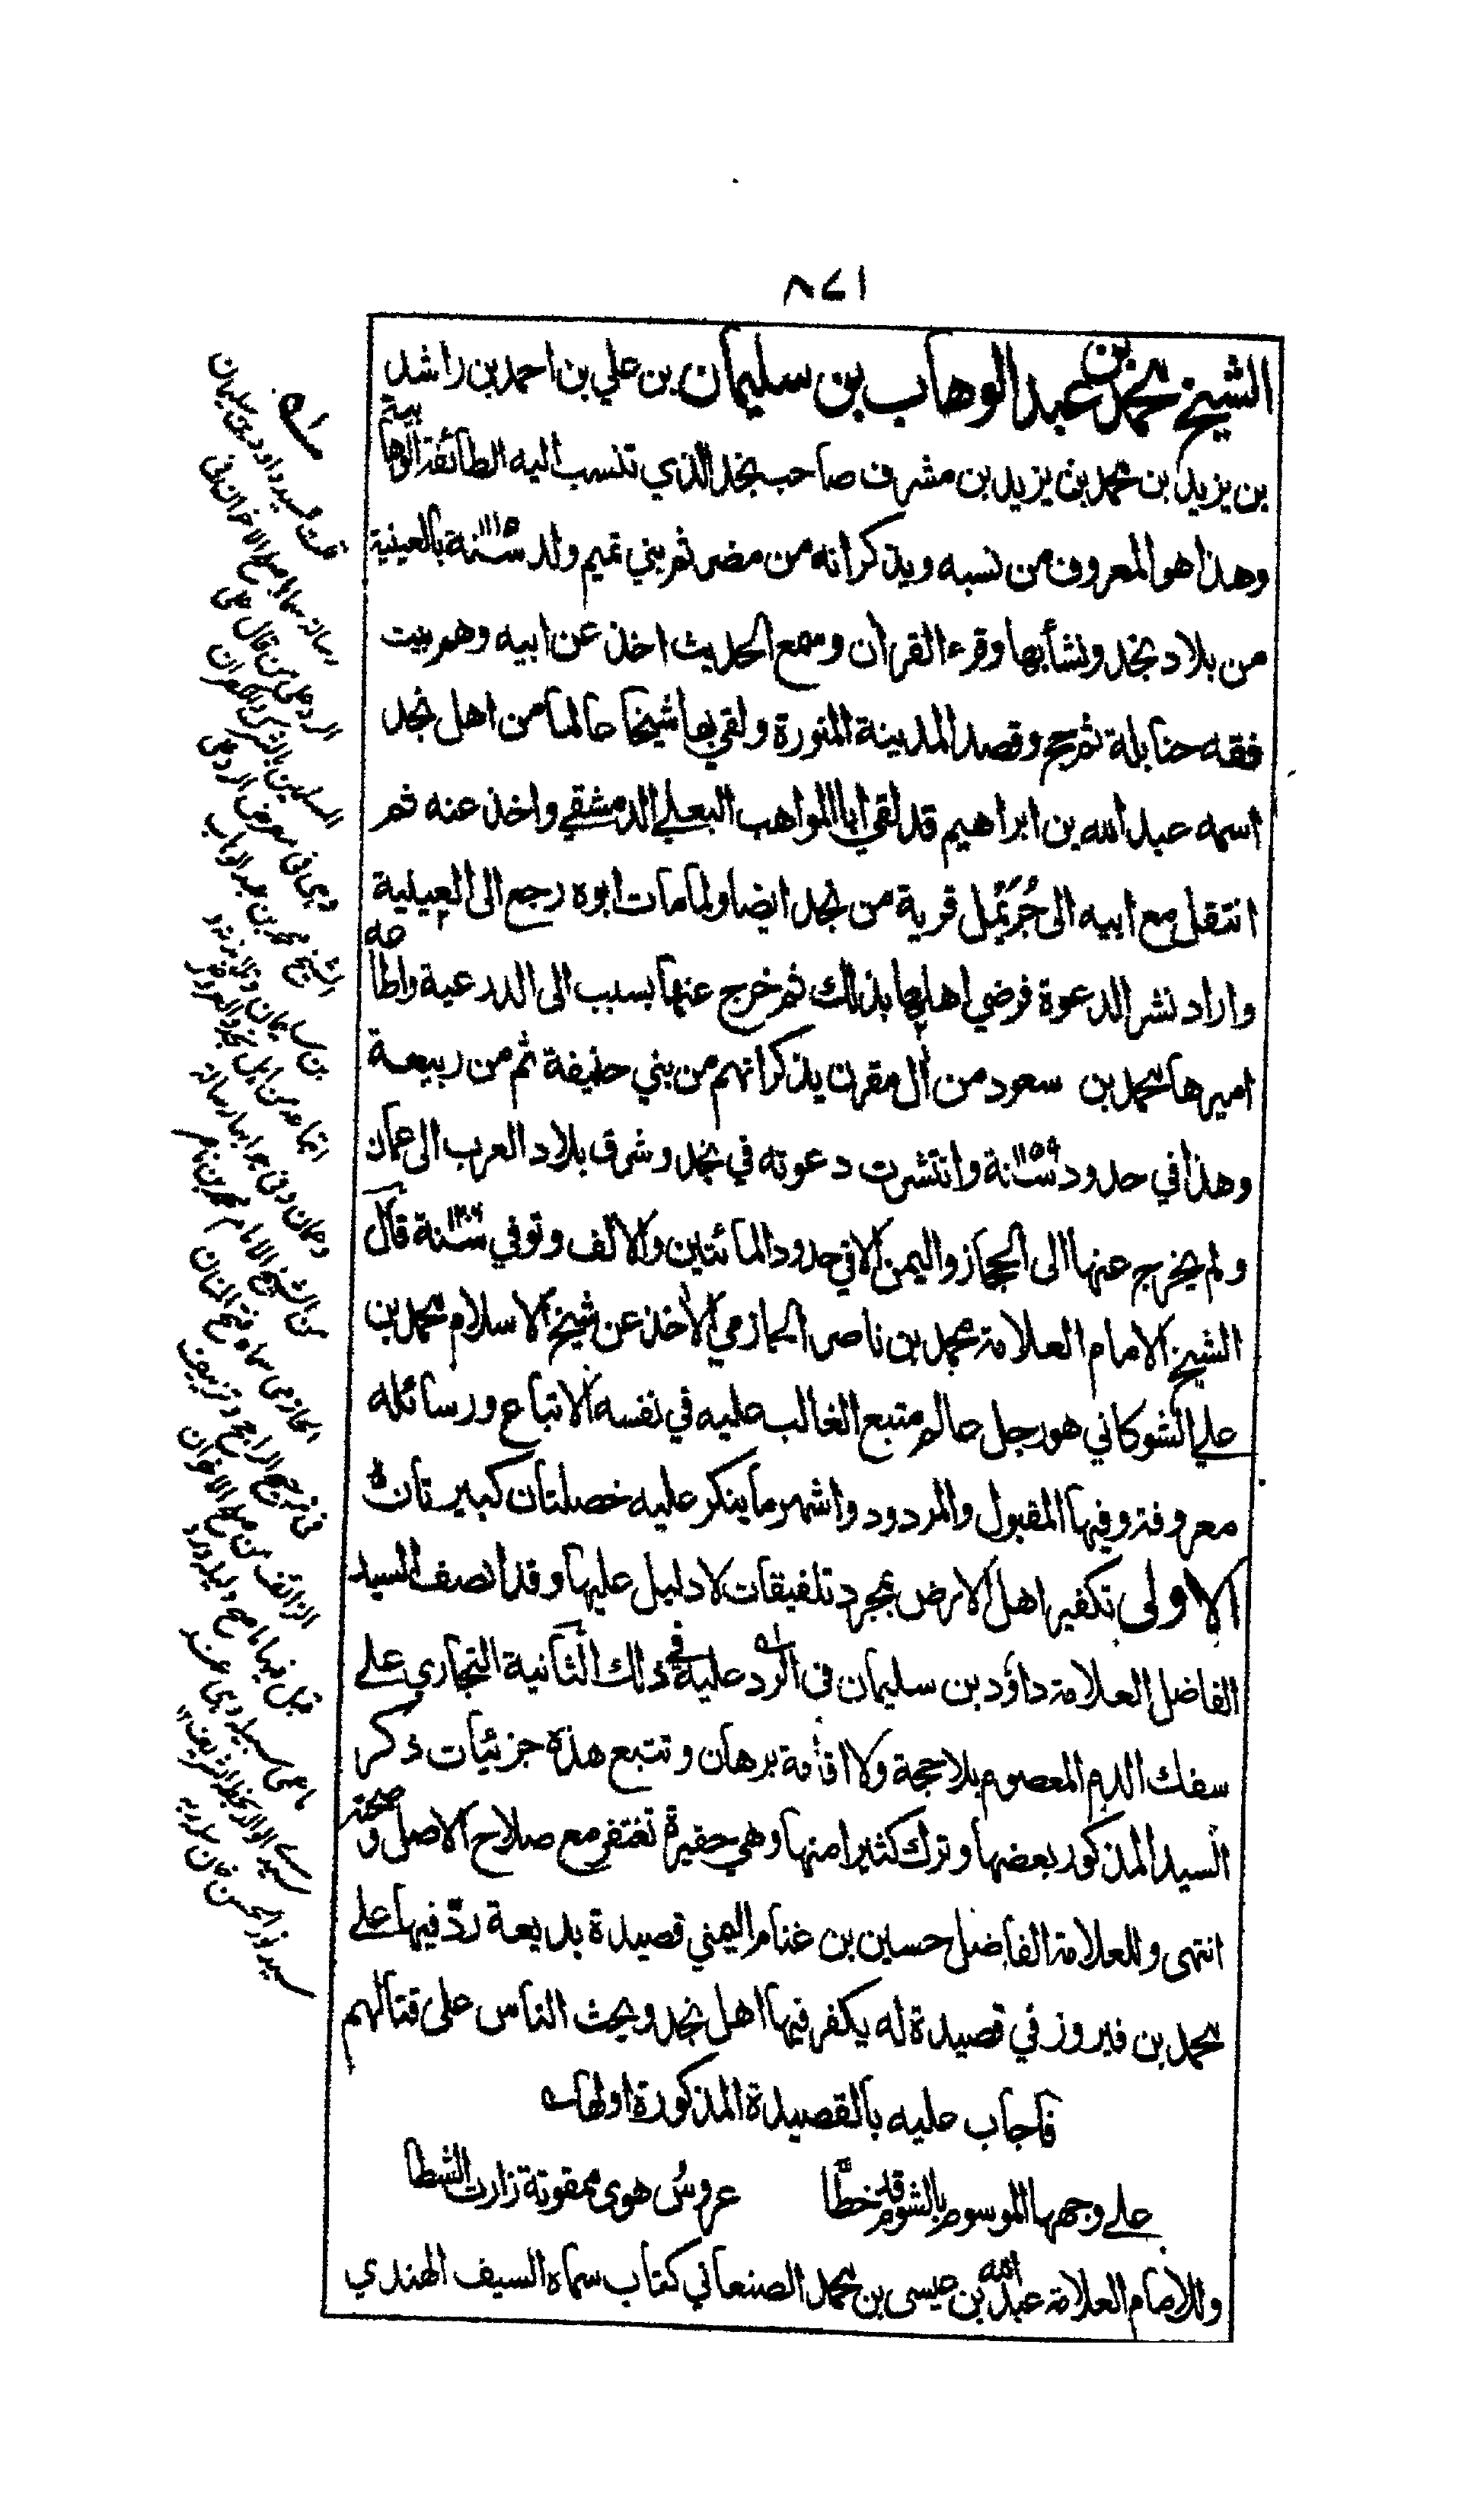 ٨٧١
الشيخ محمد بن عبد الوهاب بن سليمان بن علي بن احمد بن راشد
بن يزيد بن محمد بن يزيد بن مشرف صاحب نجد الذي تنسب اليه الطائفة الوهابية
وهذا هو المعروف من نسبه ويذكر انه من مضر ثم بني تميم ولد سنة ١١١٥ بالعيينة
من بلاد نجد ونشأ بها وقرء القران وسمع الحديث اخذ عن ابيه وهم بيت
فقه حنابلة ثم حج وقصد المدينة المنورة ولقي بها شيخا عالما من اهل نجد
اسمه عبد الله بن ابراهيم قد لقي ابا المواهب البعلي الدمشقي واخذ عنه ثم
انتقل مع ابيه الى جريمل قرية من نجد ايضا ولما مات ابوه رجع الى العيينة
واراد نشر الدعوة فرضي اهلها بذلك ثم خرج عنها بسبب الى الدرعية واطاعه
اميرها محمد بن سعود من آل مقرن يذكر انهم من بني حنيفة ثم من ربيعة
وهذا في حدود سنة ١١٥٩ وانتشرت دعوته في نجد وشرق بلاد العرب الى عمان
ولم يخرج عنها الى الحجاز واليمن الا في حدود المائتين والالف وتوفي سنة ١٢٠٦ قال
الشيخ الامام العلامة محمد بن ناصر الحازمي الآخذ عن شيخ الاسلام محمد بن
علي الشوكاني هو رجل عالم متبع الغالب عليه في نفسه الاتباع ورسائله
معروفة وفيها المقبول والمردود واشهر ما ينكر عليه خصلتان كبيرتان
الاولى تكفير اهل الارض بمجرد تلفيقات لا دليل عليها وقد انصف السيد
الفاضل العلامة داؤد بن سليمان في الرد عليه في ذلك الثانية التجاري على
سفك الدم المعصوم بلا حجة ولا اقامة برهان وتتبع هذه جزئيات ذكر
السيد المذكور بعضها وترك كثيرا منها وهي حقيرة تغتفر مع صلاح الاصل وصحته
انتهى وللعلامة الفاضل حسين بن غنام اليمني قصيدة بديعة ردّ فيها على
محمد بن فيروز في قصيدة له يكفر فيها اهل نجد ويحث الناس على قتالهم
فاجاب عليه بالقصيدة المذكورة اولها
على وجهها الموسوم بالشوم قد خطّا عروس هوى ممقوتة زارت الشطا
وللامام العلامة عبد الله بن عيسى بن محمد الصنعاني كتاب سماه السيف الهندي
السيد داود بن سليمان
رسالة سماها صلح الاخوان في
الرد على من قال على
المسلمين بالشرك والكفران
وهي في معرض الرد على
الشيخ محمد بن عبد الوهاب
من الشيخ الامام محمد بن ناصر
الحازمي سماه فتح المنان
في ترجيح الراجح وتزييف
الزائف من صلح الاخوان
سيد نور الحسن خان